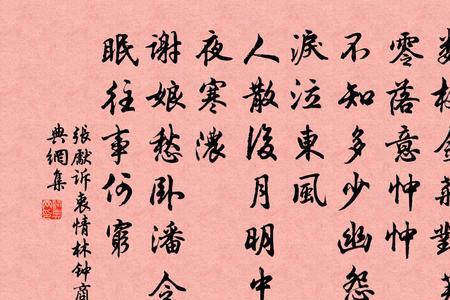 數枝金菊對芙
零落意忡忡
不知多少幽怨
淚泣東風
人散後月明中
夜寒濃
謝娘愁臥潘令
眠往事何窮
張獻訴衷情林鐘商
典網集